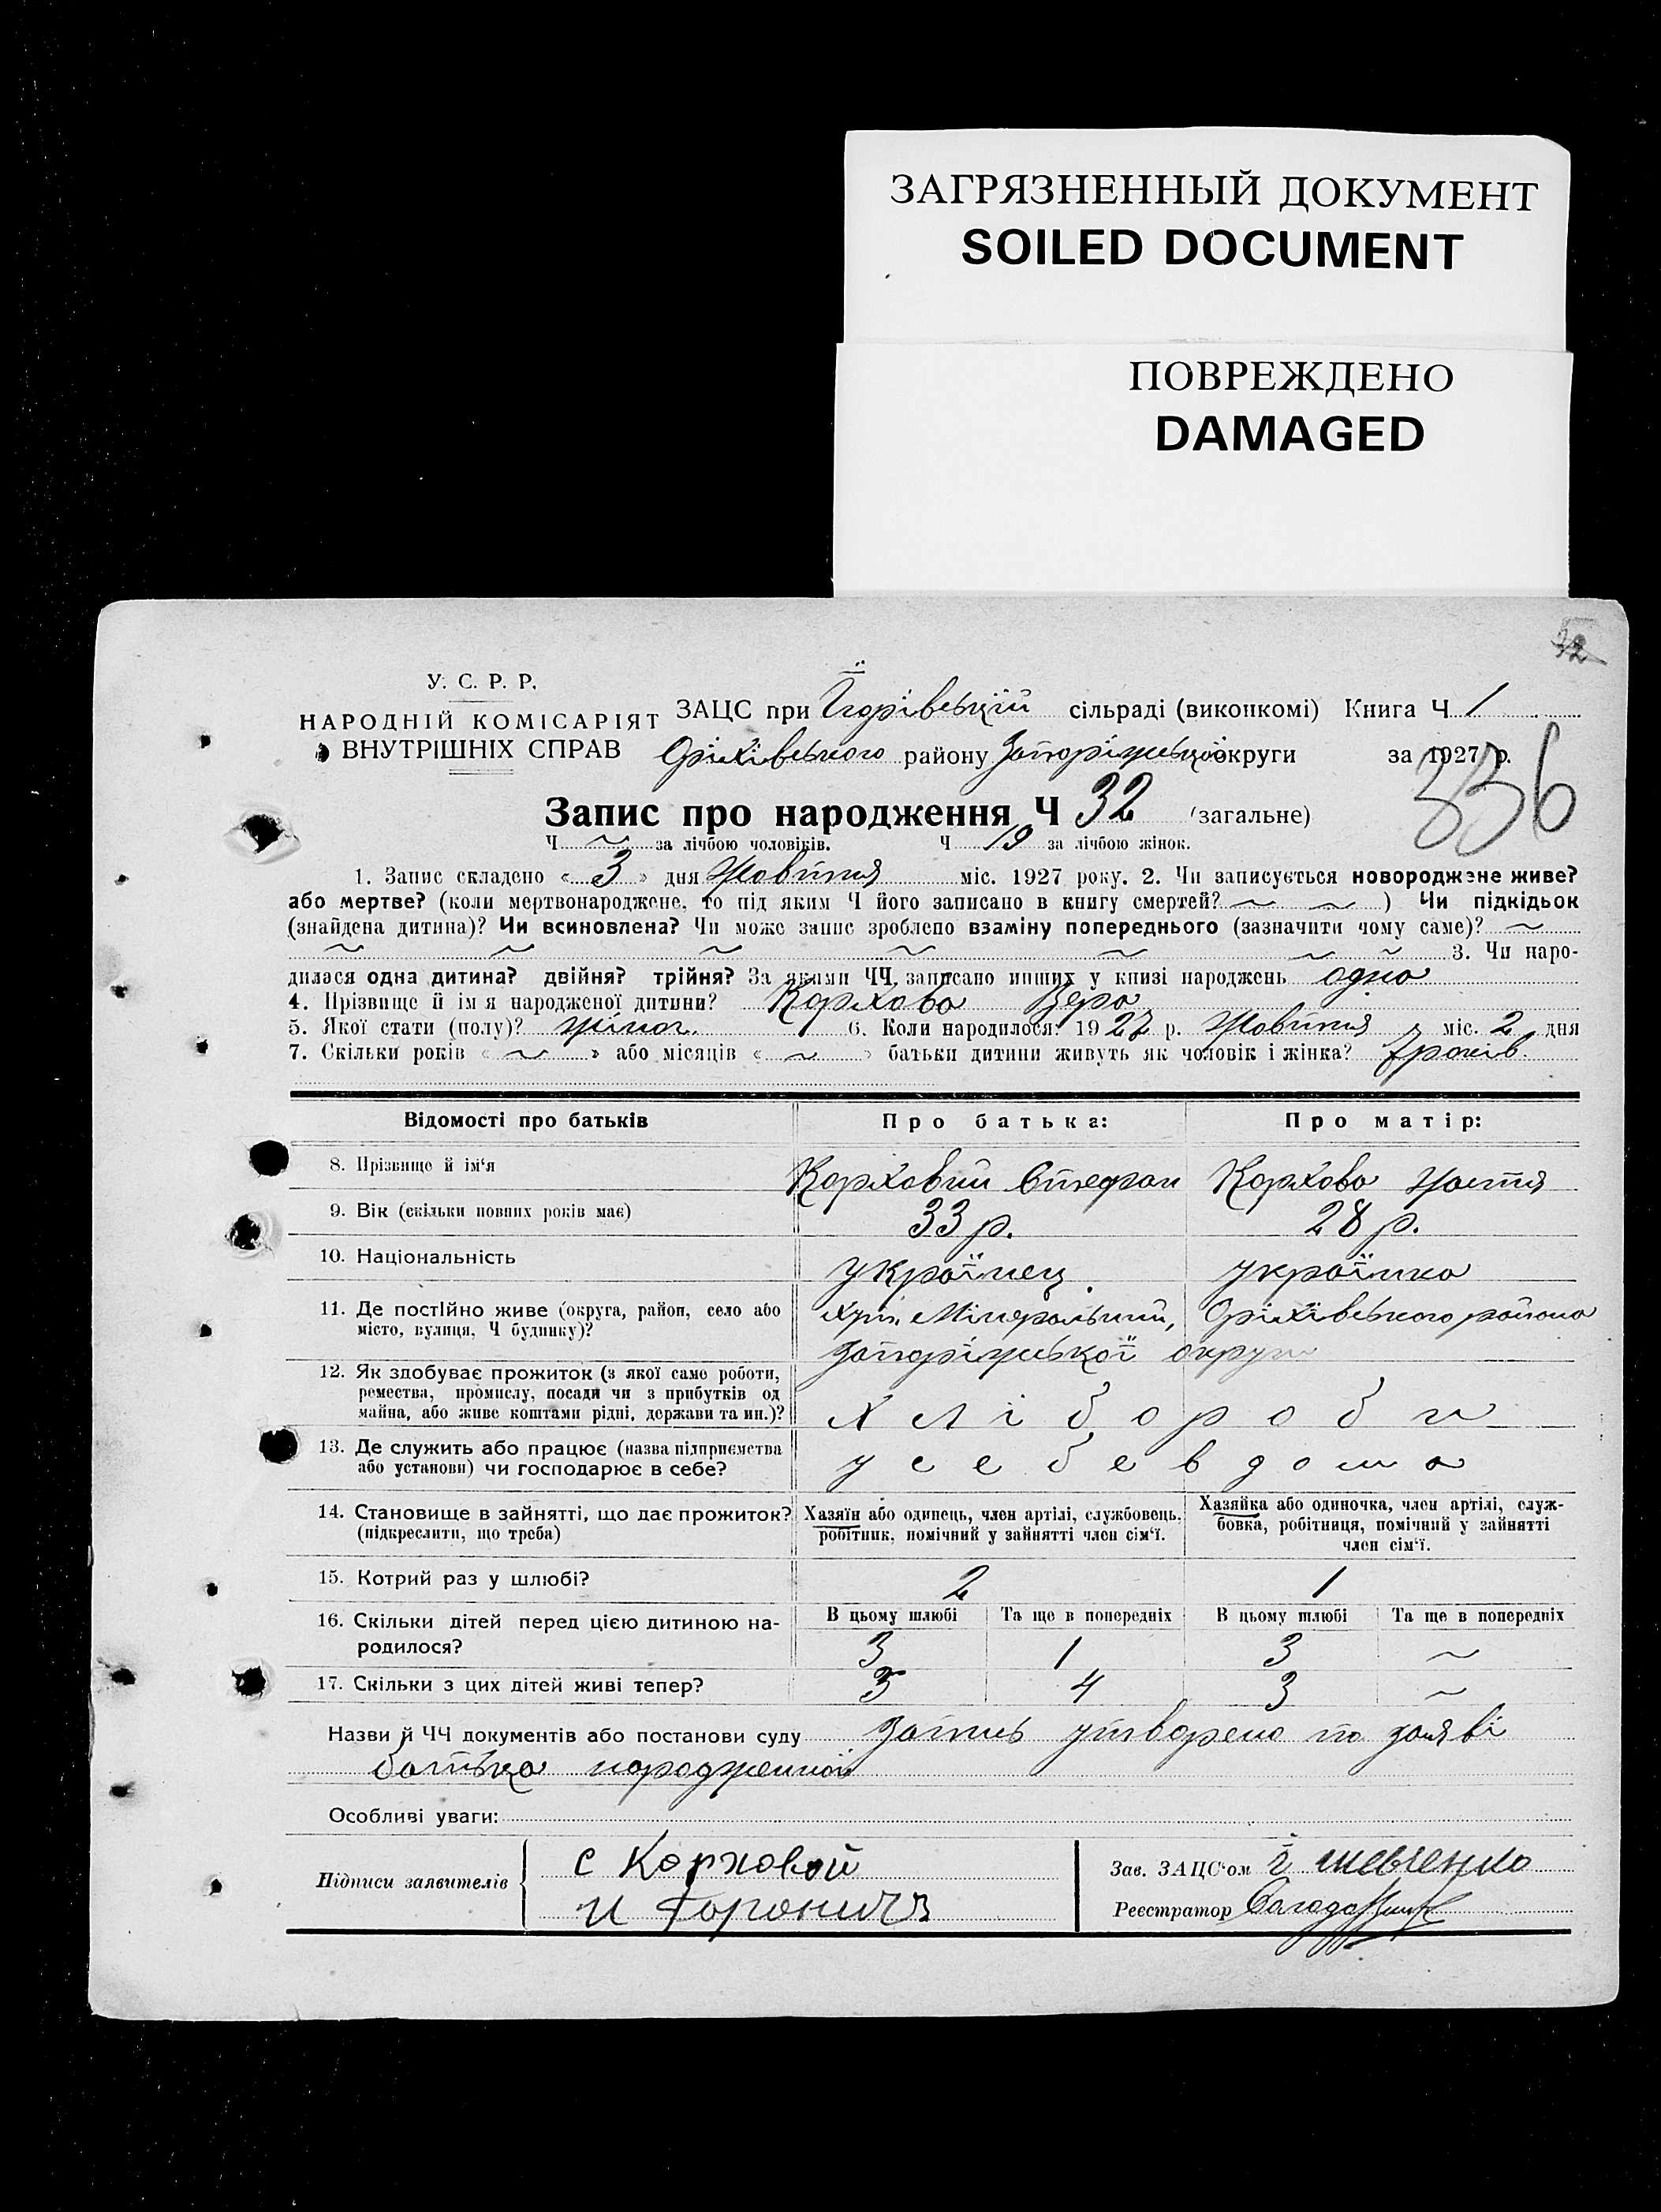 ЗАГРЯЗНЕННЫЙ ДОКУМЕНТ
SOILED DOCUMENT
ПОВРЕЖДЕНО
DAMAGED
32
У. С. Р. Р.
НАРОДНІЙ КОМІСАРІЯТ
ВНУТРІШНІХ СПРАВ
ЗАЦС при сільраді (виконкомі) Книга Ч 1
Оріхівського району Запоріжської округи за 1927 р.
336
Запис про народження Ч 32 (загальне)
Ч ~ за лічбою чоловіків. Ч 19 за лічбою жінок.
1. Запис складено « 3 » дня Жовтня міс. 1927 року. 2. Чи записується новороджене живе?
або мертве? (коли мертвонароджене, то під яким Ч його записано в книгу смертей? ~ ~ ) Чи підкідьок
(знайдена дитина)? Чи всиновлена? Чи може запис зроблено взаміну попереднього (зазначити чому саме)? ~
~ ~ ~ ~ ~ ~ ~ 3. Чи наро-
дилася одна дитина? двійня? трійня? За якими ЧЧ, записано инших у книзі народжень одна
4. Прізвище й імя народженої дитини? Коржова Вера
5. Якої стати (полу)? жіноч. 6. Коли народилося: 1927 р. Жовтня міс. 2 дня
7. Скільки років « ~ » або місяців « ~ » батьки дитини живуть як чоловік і жінка? 7 років
Відомості про батьків Про батька: Про матір:
8. Прізвище й ім'я Коржовий Стефан Коржова Настя
9. Вік (скільки повних років має) 33 р. 28 р.
10. Національність українец українка
11. Де постійно живе (округа, район, село або Хут. Мінеральний, Оріхівського района
місто, вулиця, Ч будинку)? Запоріжської округи
12. Як здобуває прожиток (з якої саме роботи,
ремества, промислу, посади чи з прибутків од
майна, або живе коштами рідні, держави та ин.)? Хлібороби
13. Де служить або працює (назва підприємства
або установи) чи господарює в себе? у себе в дома
14. Становище в зайнятті, що дає прожиток? Хазяїн або одинець, член артілі, службовець, Хазяйка або одиночка, член артілі, служ-
(підкреслити, що треба) робітник, помічний у зайнятті член сім'ї. бовка, робітниця, помічний у зайнятті
член сім'ї.
15. Котрий раз у шлюбі? 2 1
16. Скільки дітей перед цією дитиною на- В цьому шлюбі Та ще в попередніх В цьому шлюбі Та ще в попередніх
родилося? 3 1 3 ~
17. Скільки з цих дітей живі тепер? 3 4 3 ~
Назви й ЧЧ документів або постанови суду Запись утворено по заяві
батька народженної
Особливі уваги:
Підписи заявителів с Коржовой Зав. ЗАЦС'ом Шевченко
Реєстратор